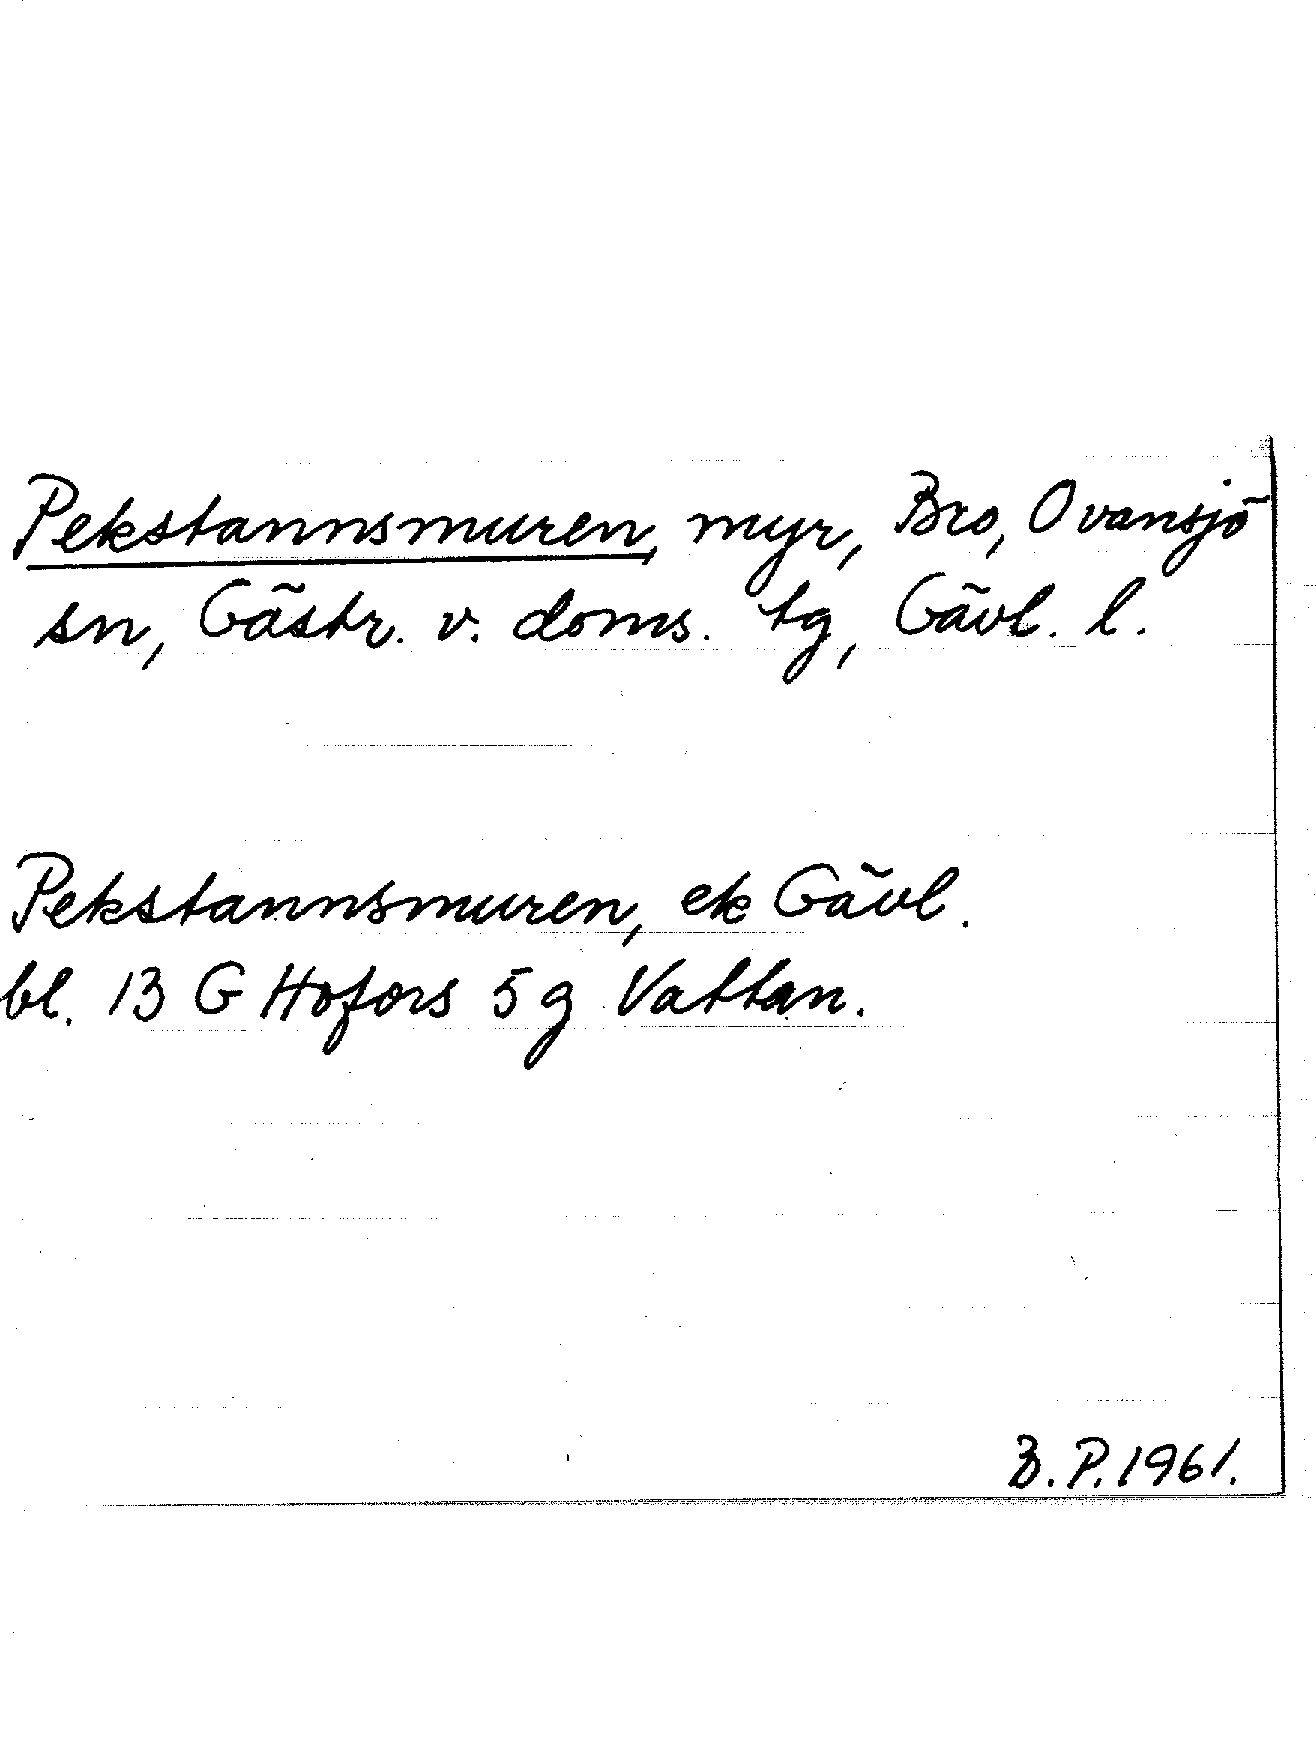 Pekstannsmuren, myr, Bro, Ovansjö
sn, Gästr. v. doms. tg, Gävl. l.
Pekstannsmuren, ek Gävl.
bl. 13 G Hofors 5 g Vattan.
B. P. 1961.